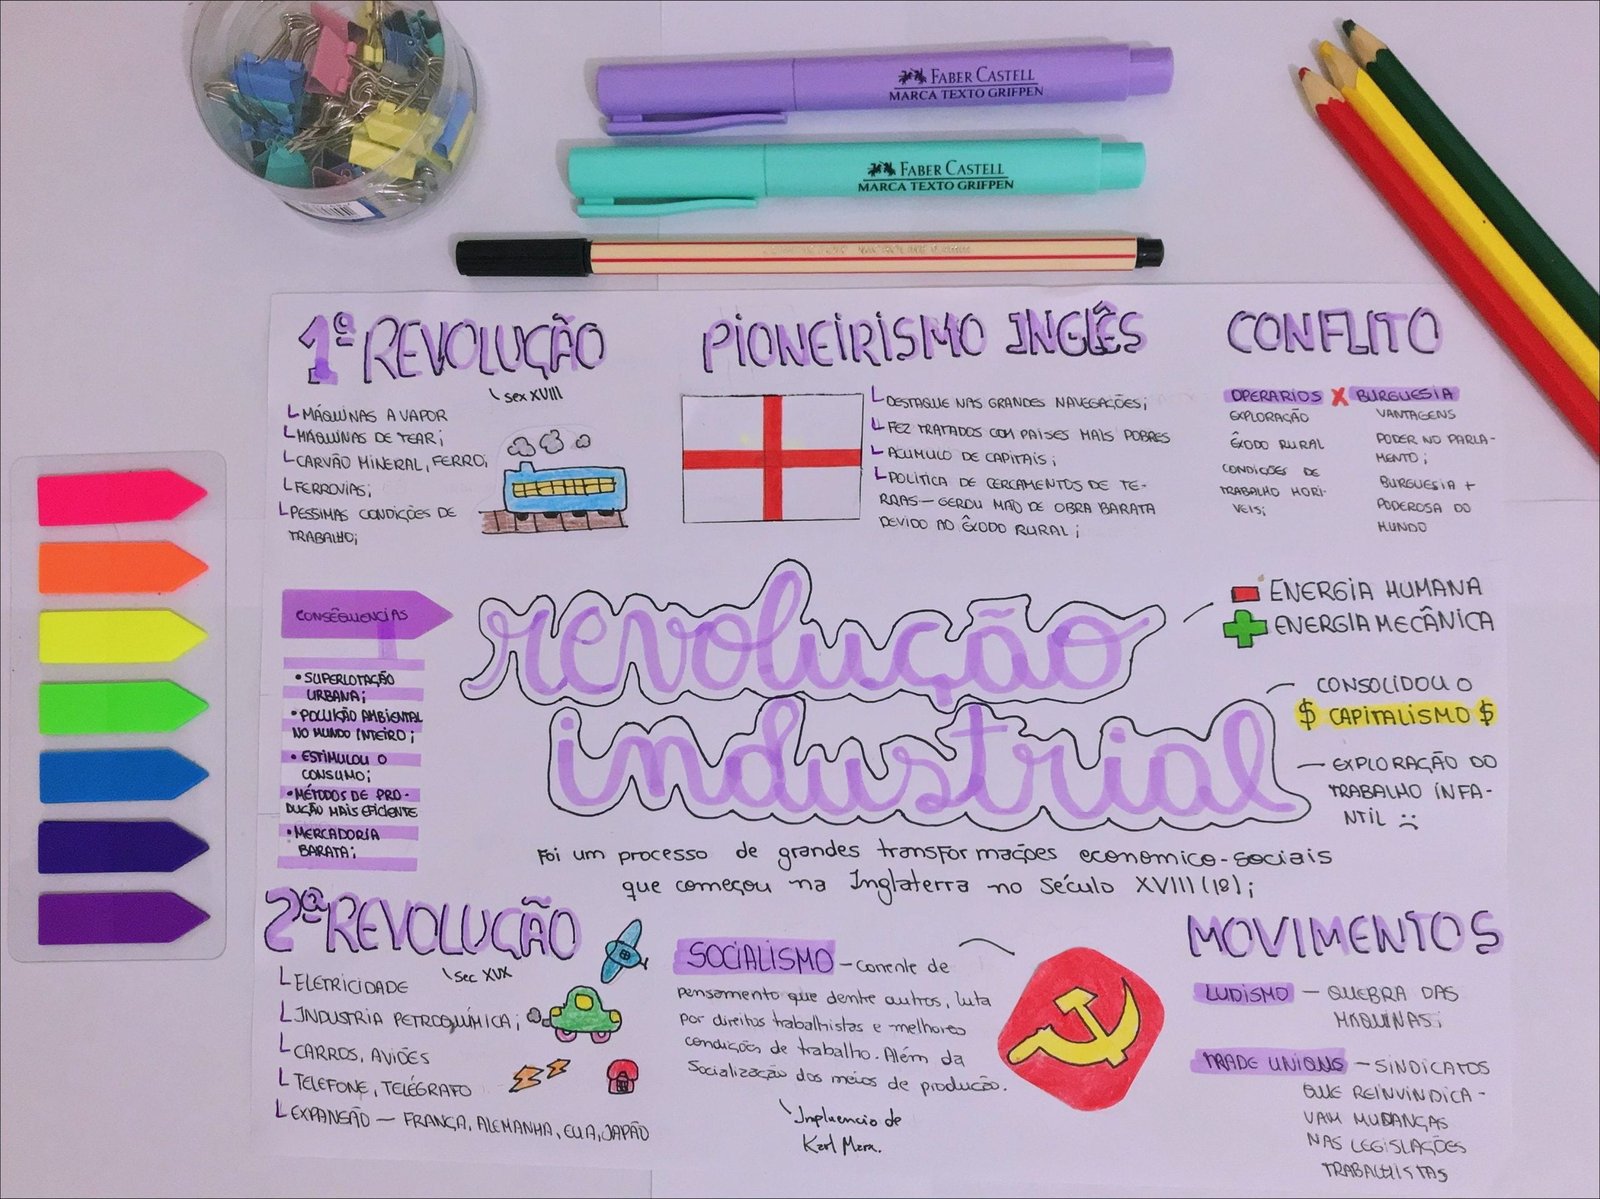 FABER CASTELL
MARCA TEXTO GRIFPEN
FABER CASTELL
MARCA TEXTO GRIFPEN
1ª REVOLUÇÃO
sex XVIII
MÁQUINAS A VAPOR
MÁQUINAS DE TEAR;
CARVÃO MINERAL, FERRO;
FERROVIAS;
PESSIMAS CONDIÇÕES DE
TRABALHO;
PIONEIRISMO INGLÊS
DESTAQUE NAS GRANDES NAVEGAÇÕES;
FEZ TRATADOS COM PAÍSES MAIS POBRES
ACUMULO DE CAPITAIS;
POLÍTICA DE CERCAMENTOS DE TE-
RRAS — GEROU MÃO DE OBRA BARATA
DEVIDO AO ÊXODO RURAL;
CONFLITO
OPERARIOS X BURGUESIA
EXPLORAÇÃO
ÊXODO RURAL
CONDIÇÕES DE
TRABALHO HORI-
VEIS;
VANTAGENS
PODER NO PARLA-
MENTO;
BURGUESIA +
PODEROSA DO
MUNDO
CONSEQUENCIAS
• SUPERLOTAÇÃO
URBANA;
• POLUIÇÃO AMBIENTAL
NO MUNDO INTEIRO;
• ESTIMULOU O
CONSUMO;
• MÉTODOS DE PRO-
DUÇÃO MAIS EFICIENTE
• MERCADORIA
BARATA;
revolução
industrial
Foi um processo de grandes transformações economico-sociais
que começou na Inglaterra no século XVIII (18);
- ENERGIA HUMANA
+ ENERGIA MECÂNICA
CONSOLIDOU O
$ CAPITALISMO $
— EXPLORAÇÃO DO
TRABALHO INFA-
NTIL :(
2ª REVOLUÇÃO
sec XIX
ELETRICIDADE
INDUSTRIA PETROQUÍMICA;
CARROS, AVIÕES
TELEFONE, TELÉGRAFO
EXPANSÃO — FRANÇA, ALEMANHA, EUA, JAPÃO
SOCIALISMO — corrente de
pensamento que dentre outros, luta
por direitos trabalhistas e melhores
condições de trabalho. Além da
Socialização dos meios de produção.
Influencia de
Karl Marx.
MOVIMENTOS
LUDISMO — QUEBRA DAS
MÁQUINAS;
TRADE UNIONS — SINDICATOS
QUE REINVINDICA-
VAM MUDANÇAS
NAS LEGISLAÇÕES
TRABALHISTAS